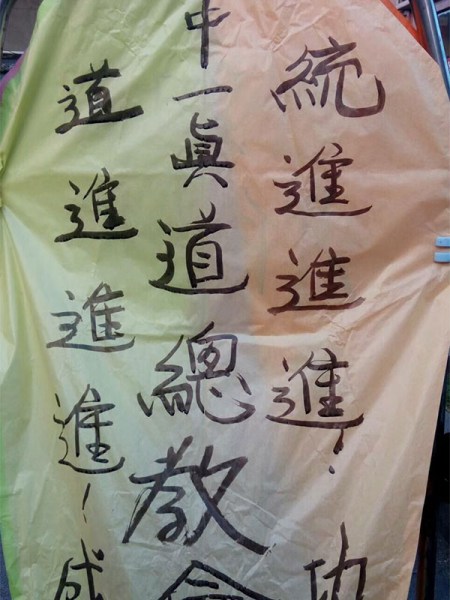 統進進進！功
中一眞道總教會
道進進進！成